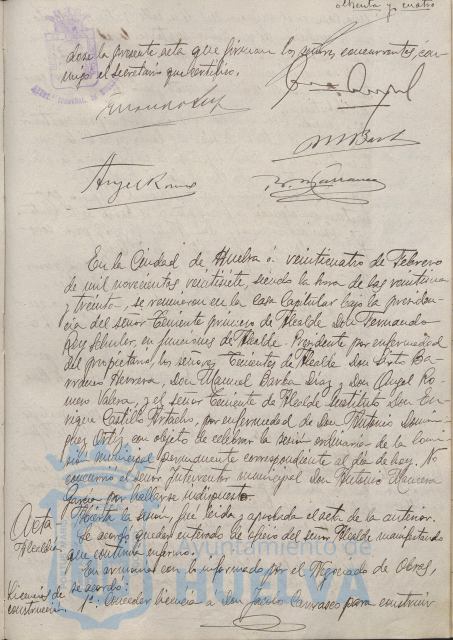 ochenta y cuatro
dose la presente acta que firman los señores concurrentes, con-
migo el secretario que certifico.
Angel Romero
En la Ciudad de Huelva á veinticuatro de Febrero
de mil novecientos veintisiete, siendo la hora de las veintiuna
y treinta, se reunieron en la Casa Capitular bajo la presiden-
cia del señor Teniente primero de Alcalde Don Fernando
Rey Schuler, en funciones de Alcalde-Presidente por enfermedad
del propietario, los señores Tenientes de Alcalde Don Sixto Ba-
rranco Herrera, Don Manuel Barba Díaz y Don Angel Ro-
mero Valera, y el señor Teniente de Alcalde sustituto Don En-
rique Castillo, por enfermedad de Don Antonio Domin-
guez Ortiz, con objeto de celebrar la sesión ordinaria de la Comi-
sión municipal permanente correspondiente al día de hoy. No
concurrió el señor Interventor municipal Don Antonio
García por hallarse indispuesto.
Acta
Abierta la sesión, fue leída y aprobada el acta de la anterior.
Alcaldía
Se acordó quedar enterado de oficio del señor Alcalde manifestando
que continúa enfermo.
En armonía con lo informado por el Negociado de Obras,
Licencias de
construcción.
se acordó:
1º: Conceder licencia á Don Jacobo Carrasco para construir
Ayuntamiento de
HUELVA